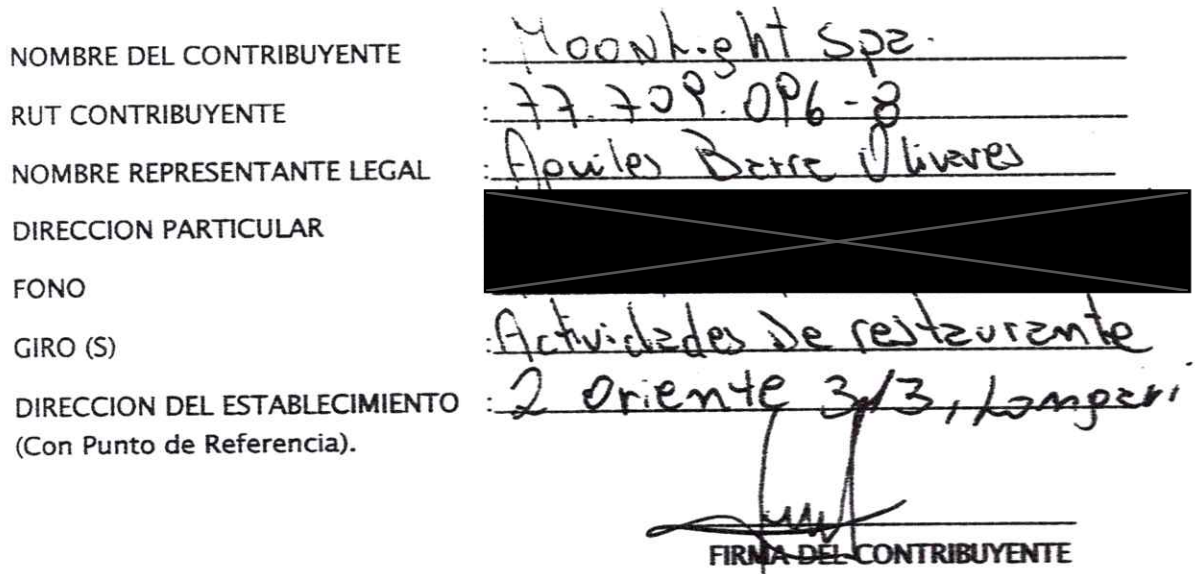 NOMBRE DEL CONTRIBUYENTE : MooNLight Spa.
RUT CONTRIBUYENTE : 77.709.096-8
NOMBRE REPRESENTANTE LEGAL : Aquiles Barra Olivares
DIRECCION PARTICULAR
FONO
GIRO (S) : Actividades De restaurante
DIRECCION DEL ESTABLECIMIENTO : 2 Oriente 313, Longavi
(Con Punto de Referencia).
FIRMA DEL CONTRIBUYENTE